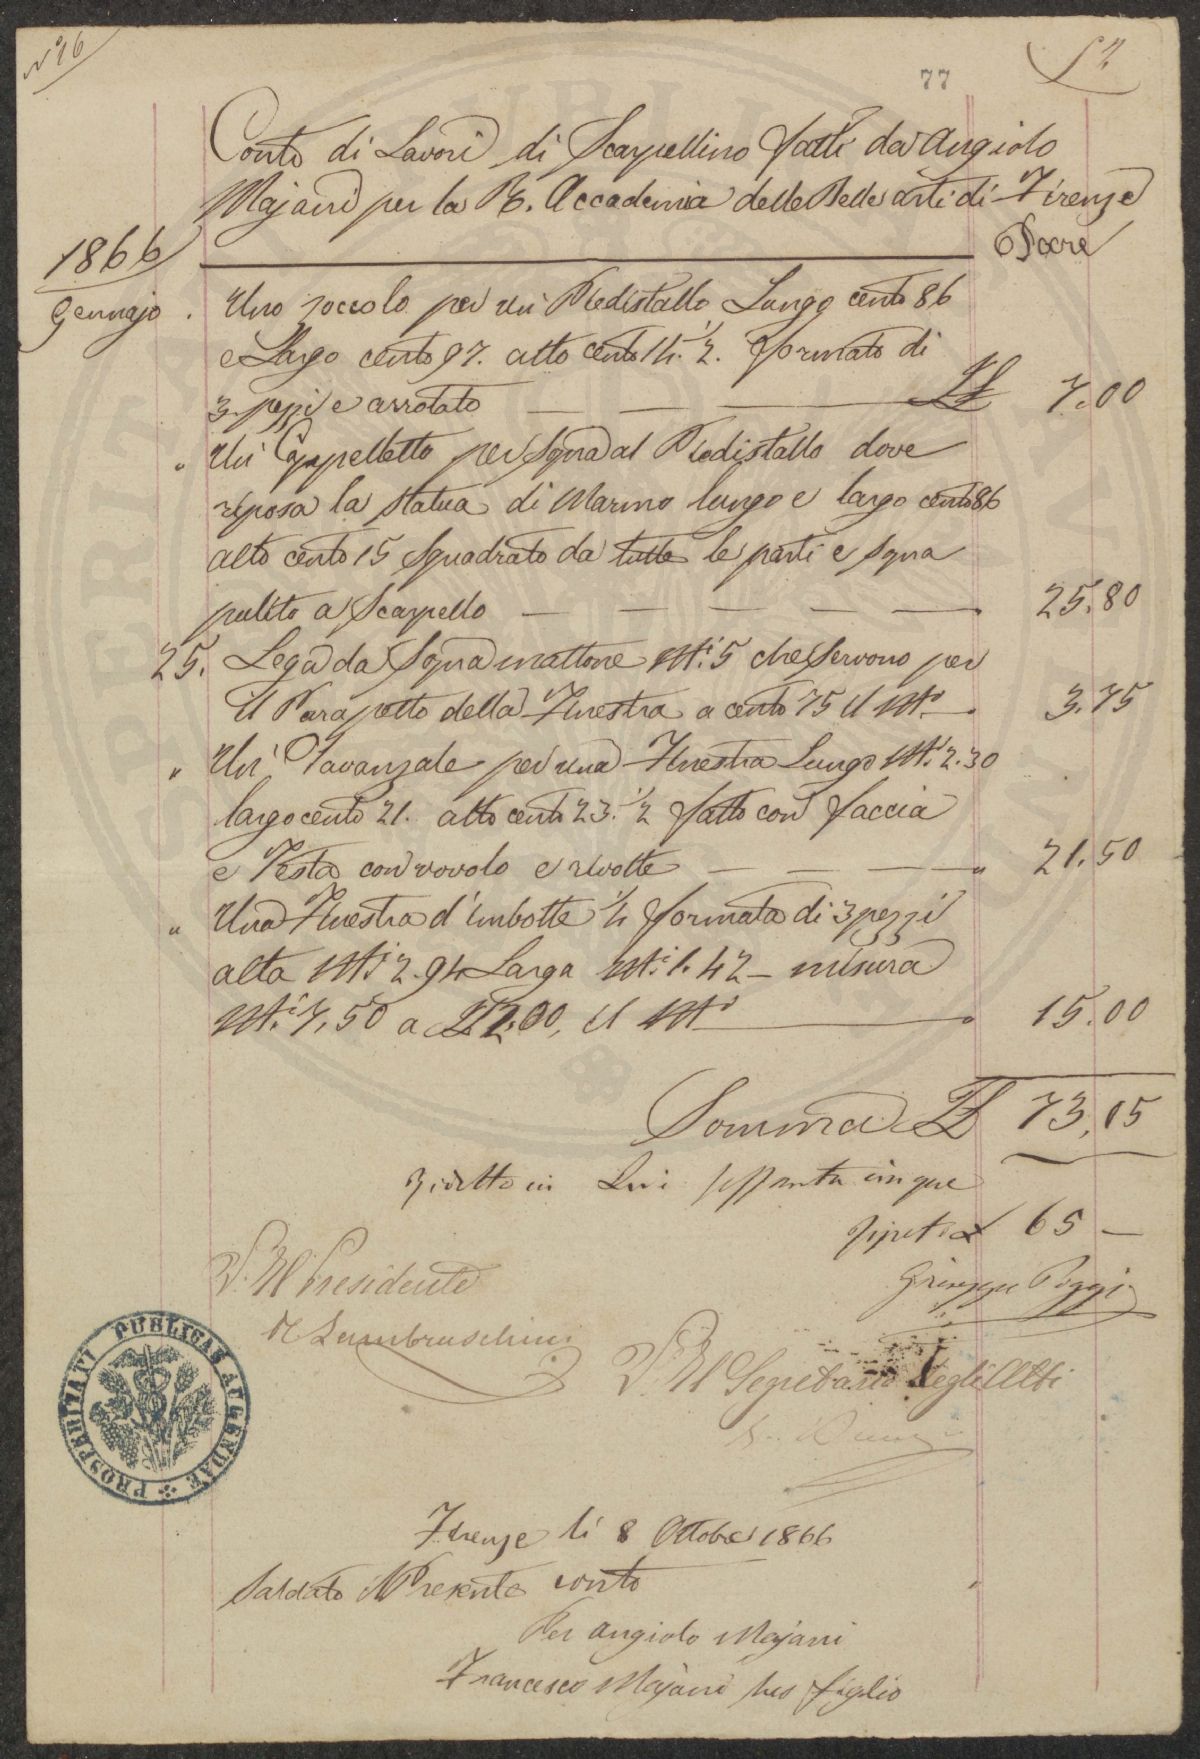 N° 16
77
Conto di Lavori di Scarpellino fatti da Angiolo
Majani per la R. Accademia delle Belle arti di Firenze
1866
Dare
Gennajo . Uno zoccolo per un Piedistallo Lungo cento 86
e Largo cento 97. alto cento 14. ½. formato di
3 pezzi e arrotato L 7.00
" Un Cappelletto per Sopra al Piedistallo dove
riposa la Statua di Marmo lungo e largo cento 86
alto cento 15 Squadrato da tutte le parti e Sopra
pulito a Scarpello 25.80
25. Lega da Sopra mattone Mti 5 che Servono per
il Parapetto della Finestra a cento 75 il Mto 3.75
" Un Davanzale per una Finestra Lungo Mti 2.30
largo cento 21. alto cento 23. ½ fatto con faccia
e Testa con vovolo e rivolte " 21.50
" Una Finestra d'imbotte ¼ formata di 3 pezzi
alta Mti 2.94 Larga Mti 1.42 – misura
Mti 7,50 a L 2.00, il Mto 15.00
Somma L 73,05
Ridotto in Lire sessanta cinque
65 —
Giuseppe Poggi
V. Il Presidente
R Lambruschini
V. Il Segretario degli Atti
PROSPERITATI PUBLICAE AUGENDAE
Firenze li 8 Ottobre 1866
Saldato il Presente conto
Per Angiolo Majani
Francesco Majani suo figlio